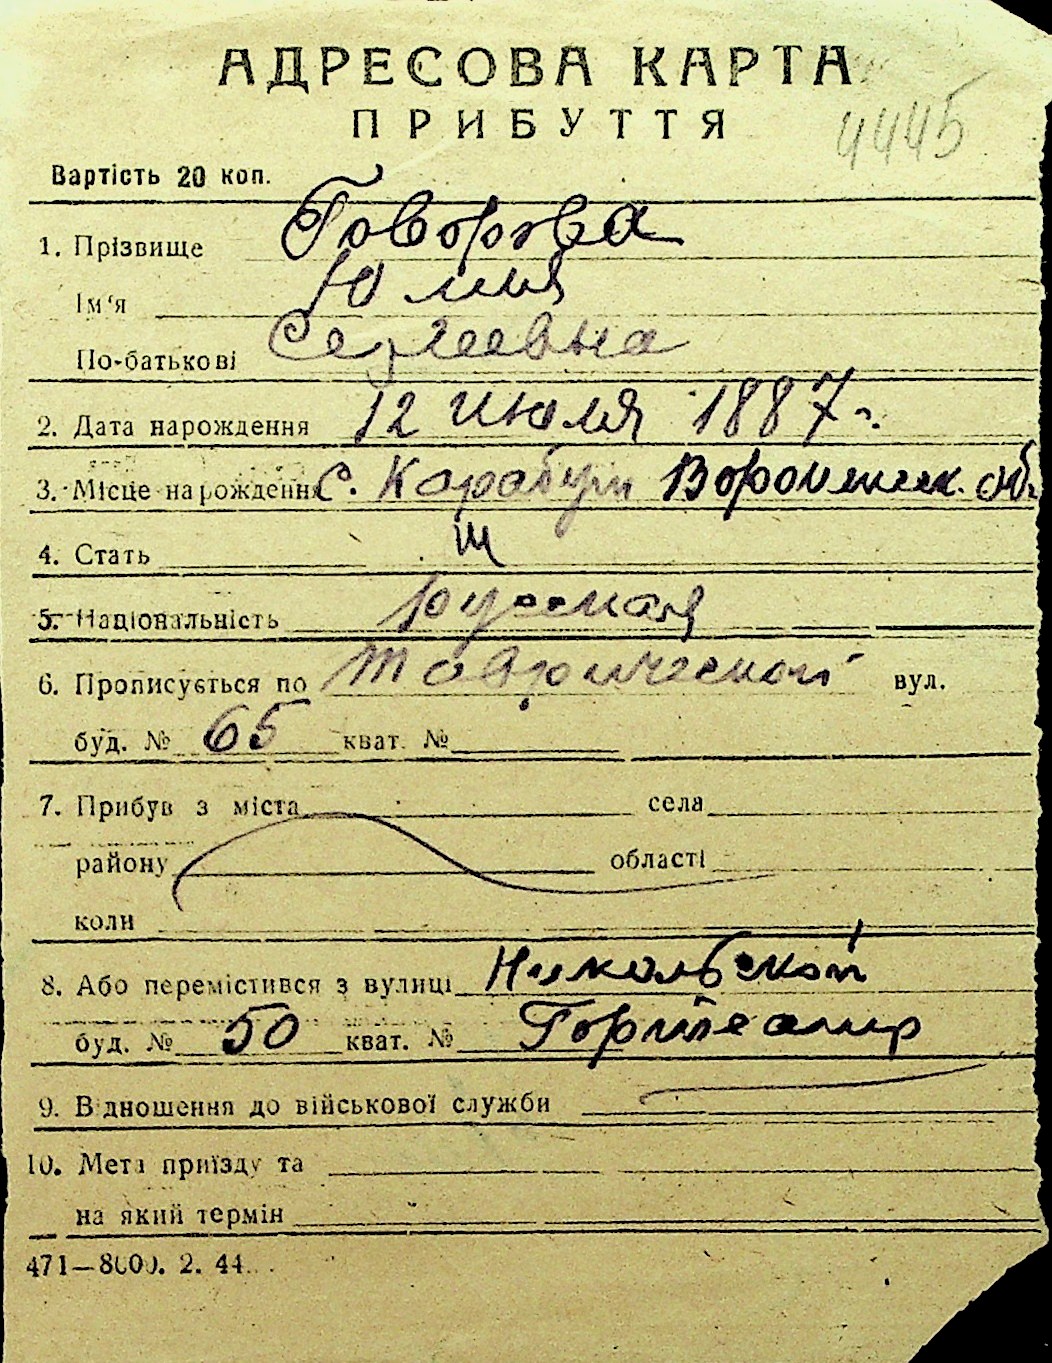 АДРЕСОВА КАРТА
ПРИБУТТЯ
4445
Вартість 20 коп.
1. Прізвище Говорова
Ім'я Юлия
По-батькові Сергеевна
2. Дата народження 12 июля 1887 г.
3. Місце народження с. Воронежск. обл.
4. Стать
5. Національність русская
6. Прописується по Таврической вул.
буд. № 65 кват. №
7. Прибув з міста села
району області
коли
8. Або перемістився з вулиці Никольской
буд. № 50 кват. №
9. Відношення до військової служби
10. Мета приїзду та
на який термін
471—8000. 2. 44.